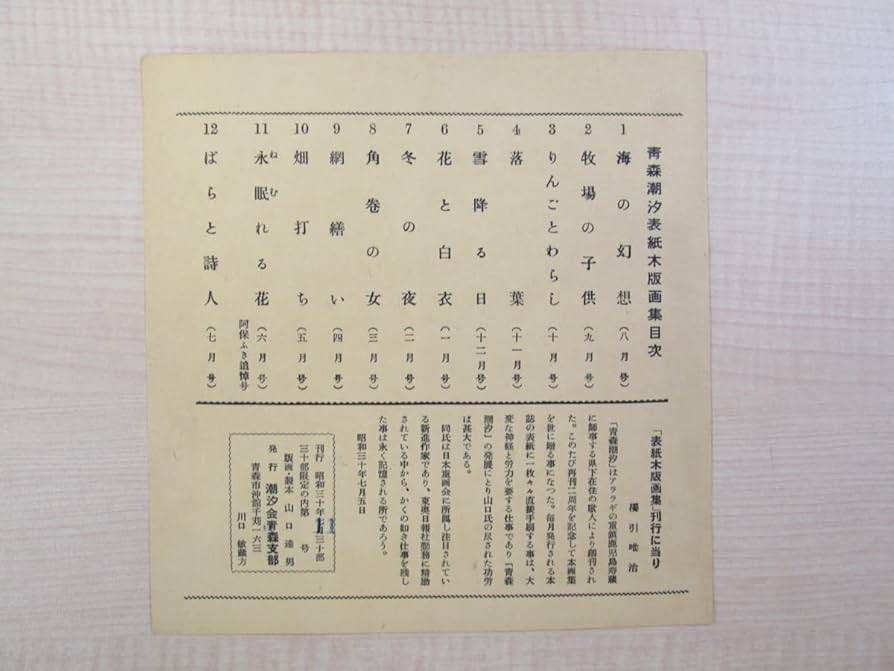 青森潮汐表紙木版画集目次
1 海の幻想（八月号）
2 牧場の子供（九月号）
3 りんごとわらし（十月号）
4 落葉（十一月号）
5 雪降る日（十二月号）
6 花と白衣（一月号）
7 冬の夜（二月号）
8 角巻の女（三月号）
9 網繕い（四月号）
10 畑打ち（五月号）
11 永眠れる花（六月号）
ねむ
阿保ふき追悼号
12 ばらと詩人（七月号）
「表紙木版画集」刊行に当り
引唯治
「青森潮汐」はアララギの重鎮鹿児島寿蔵
に師事する県下在住の歌人により創刊され
た。このたび再刊二周年を記念して本画集
を世に贈る事になつた。毎月発行される本
誌の表紙に一枚々々直接手刷する事は、大
変な神経と労力を要する仕事であり「青森
潮汐」の発展にとり山口氏の尽された功労
は甚大である。
同氏は日本童画会に所属し注目されてい
る新進作家であり、東奥日報社勤務に精励
されている中から、かくの如き仕事を残し
た事は永く記憶される所であろう。
昭和三十年七月五日
刊行 昭和三十年七月三十部
三十部限定の内第 号
版画・製本 山口達男
発行 潮汐会青森支部
青森市沖舘千刈一六三
川口敏蔵方